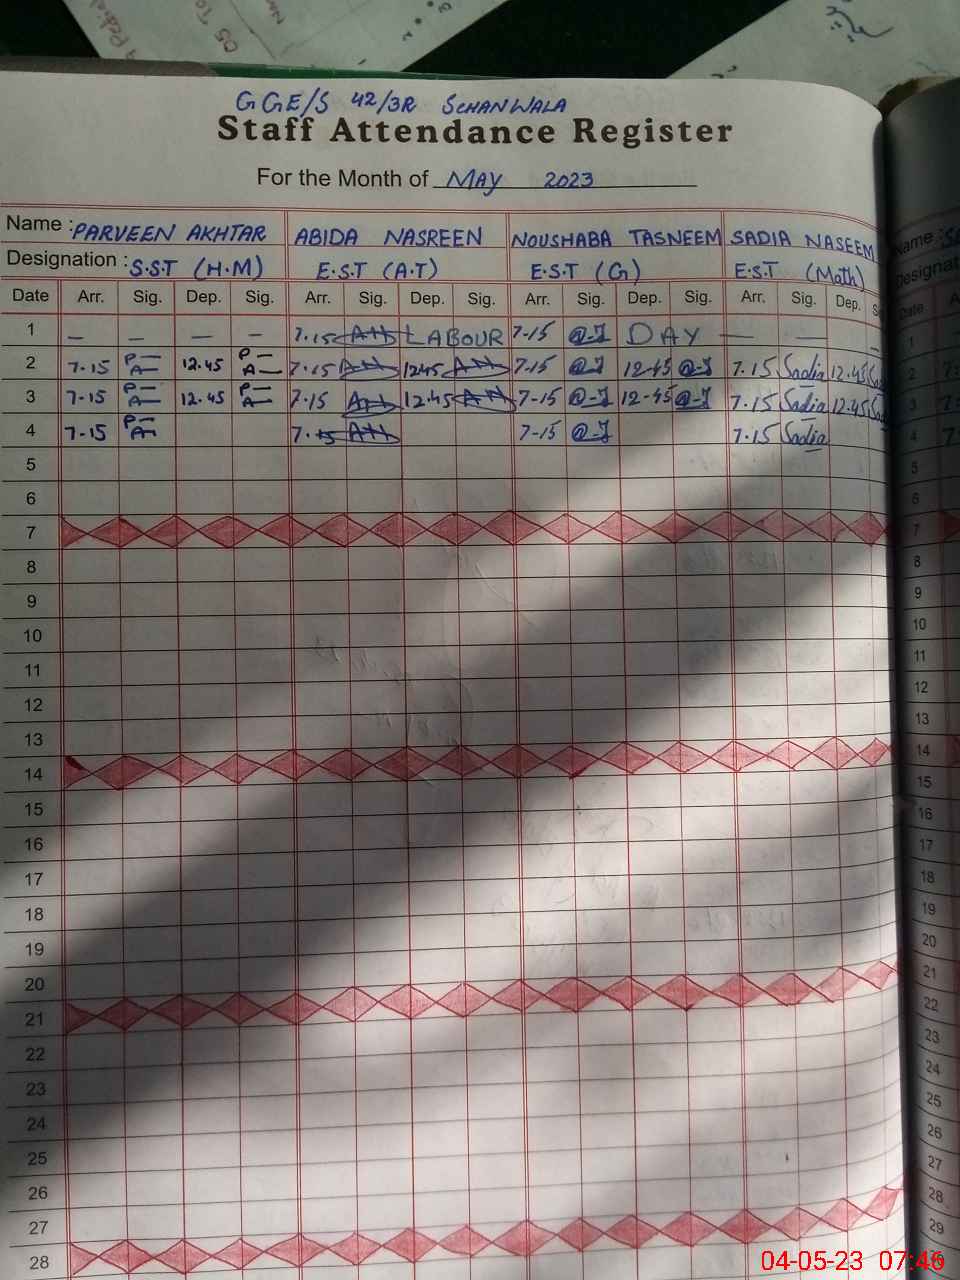 GGE/S 42/3R SCHANWALA
Staff Attendance Register
For the Month of MAY 2023
Name : PARVEEN AKHTAR ABIDA NASREEN NOUSHABA TASNEEM SADIA NASEEM
Designation : S.S.T (H.M) E.S.T (A.T) E.S.T (G) E.S.T (Math)
Date Arr. Sig. Dep. Sig. Arr. Sig. Dep. Sig. Arr. Sig. Dep. Sig. Arr. Sig. Dep.
1 — — — — 7.15 LABOUR 7-15 DAY — — —
2 7-15 P A 12.45 P A 7-15 1245 7-15 12-45 7.15 Sadia 12.45
3 7-15 P A 12.45 P A 7-15 12.45 7-15 12-45 7.15 Sadia 12.45
4 7-15 P A 7.15 7-15 7.15 Sadia
5
6
7
8
9
10
11
12
13
14
15
16
17
18
19
20
21
22
23
24
25
26
27
28
Name :
Designat
Date
1
2
3
4
5
6
7
8
9
10
11
12
13
14
15
16
17
18
19
20
21
22
23
24
25
26
27
28
29
04-05-23 07:46